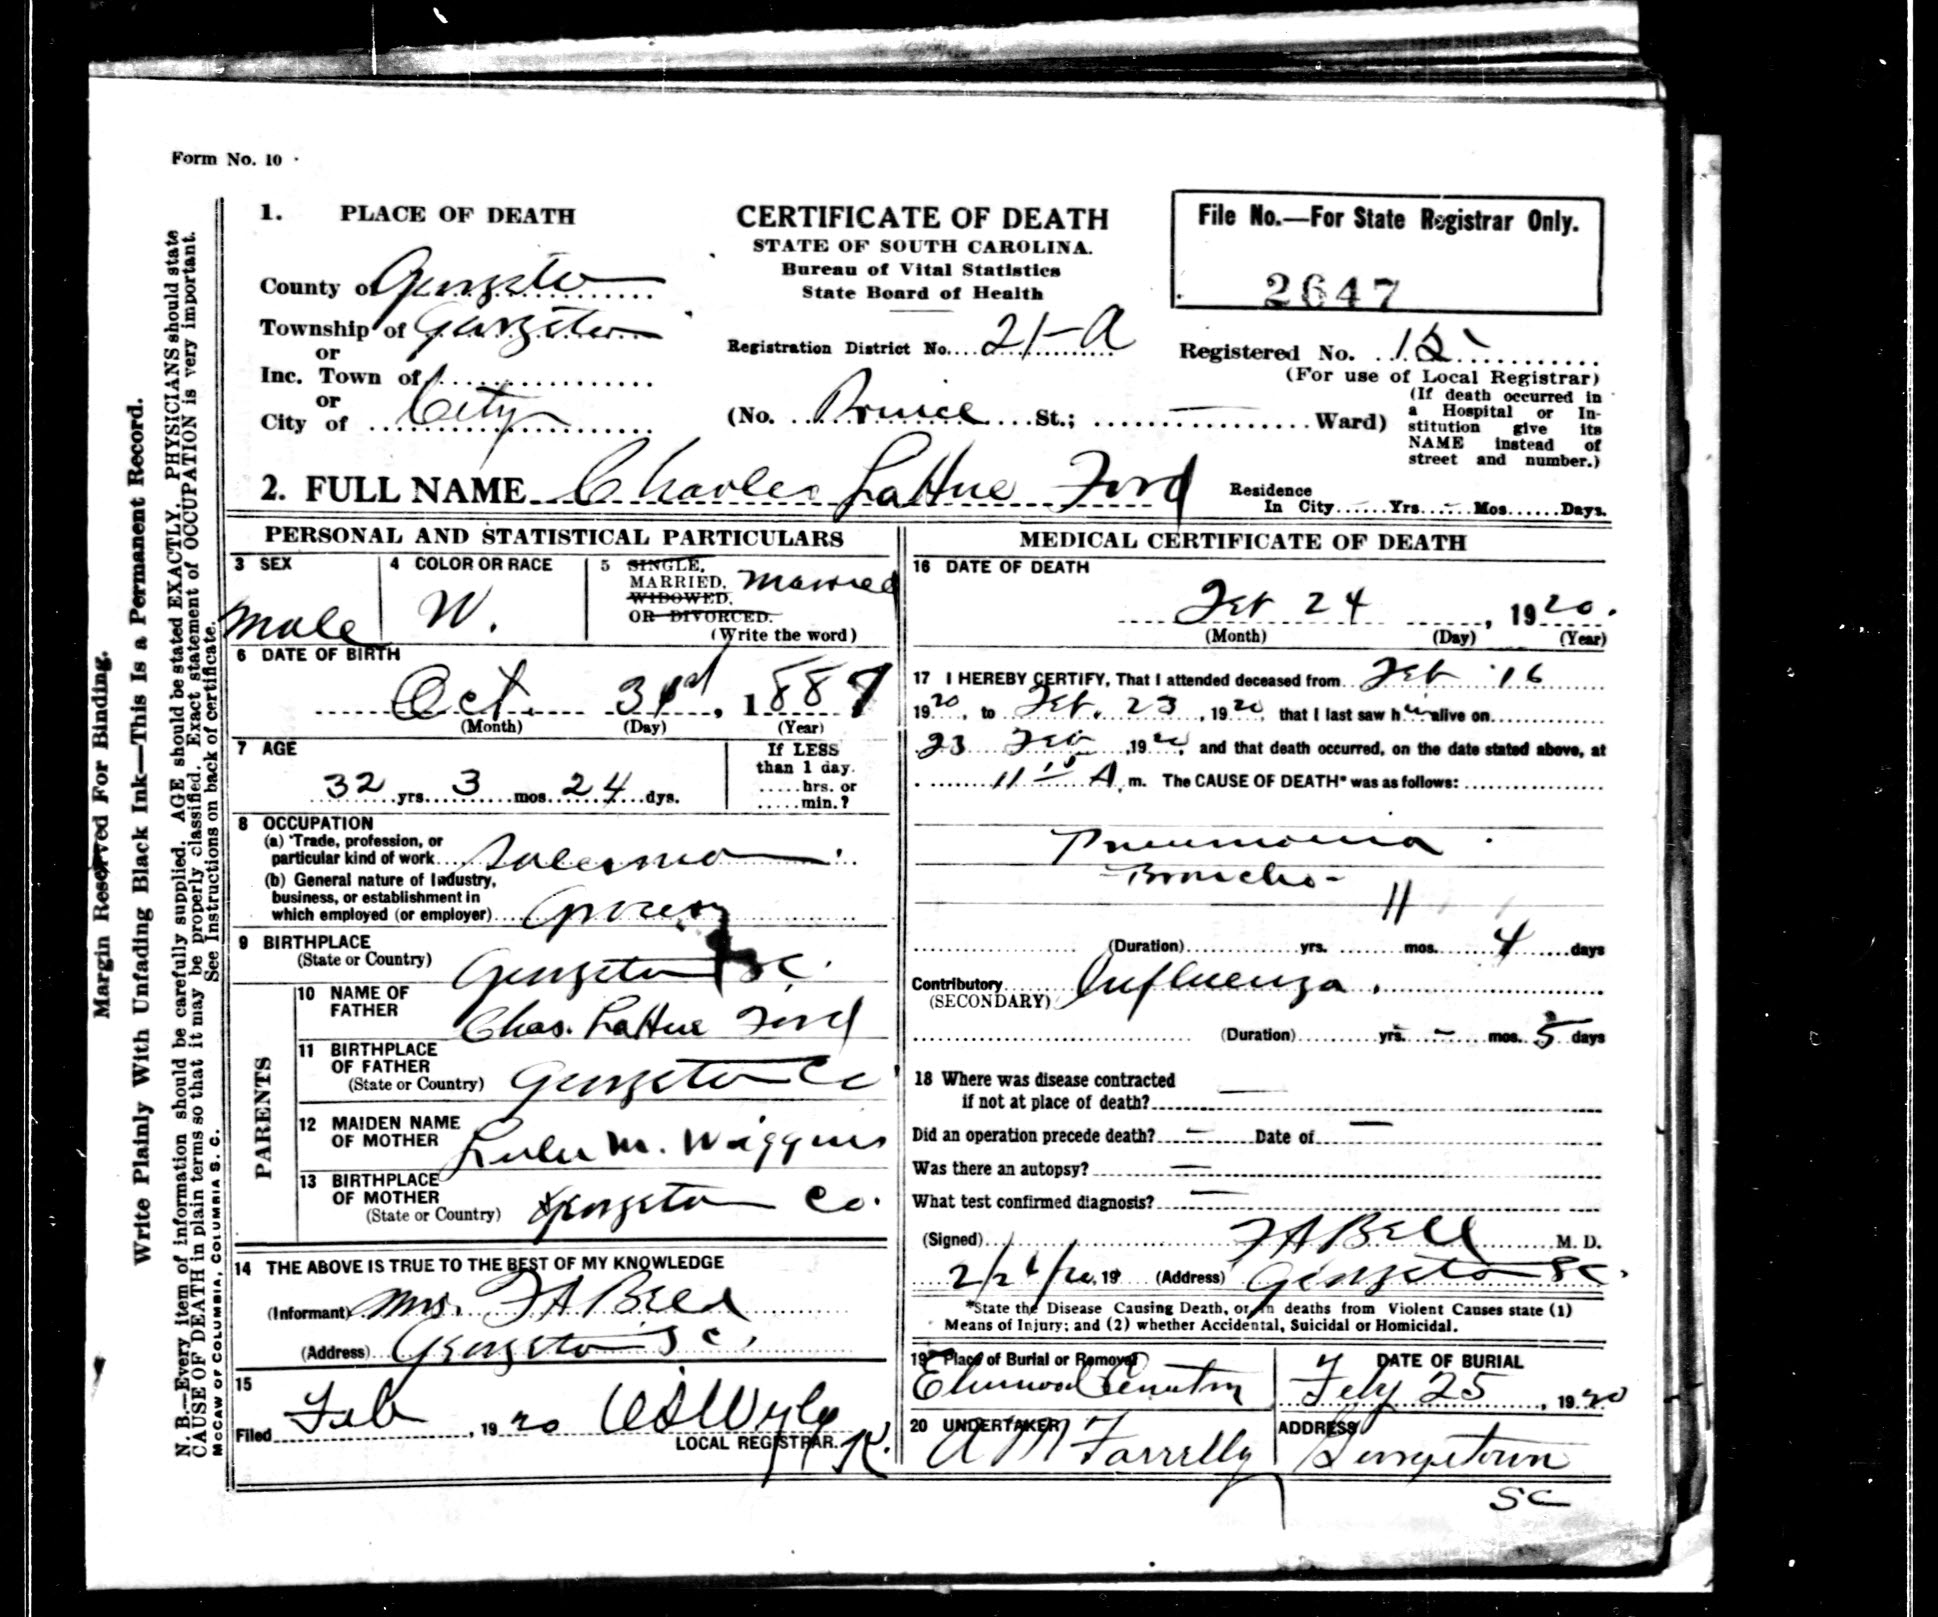 Form No. 10
1. PLACE OF DEATH
County of Georgetown
Township of Georgetown
or
Inc. Town of
or
City of City
CERTIFICATE OF DEATH
STATE OF SOUTH CAROLINA.
Bureau of Vital Statistics
State Board of Health
Registration District No. 21-A
(No. Prince St.; — Ward)
File No.—For State Registrar Only.
2647
Registered No. 15
(For use of Local Registrar)
(If death occurred in
a Hospital or In-
stitution give its
NAME instead of
street and number.)
2. FULL NAME Charles LaHue Ford
Residence
In City Yrs Mos Days.
PERSONAL AND STATISTICAL PARTICULARS
3 SEX
Male
4 COLOR OR RACE
W.
5 SINGLE,
MARRIED, Married
WIDOWED,
OR DIVORCED.
(Write the word)
6 DATE OF BIRTH
Oct. 31st, 1887
(Month) (Day) (Year)
7 AGE
32 yrs. 3 mos. 24 dys.
If LESS
than 1 day.
hrs. or
min.?
8 OCCUPATION
(a) Trade, profession, or
particular kind of work Salesman
(b) General nature of Industry,
business, or establishment in
which employed (or employer) Grocery
9 BIRTHPLACE
(State or Country) Georgetown S.C.
PARENTS
10 NAME OF
FATHER Chas. LaHue Ford
11 BIRTHPLACE
OF FATHER
(State or Country) Georgetown Co
12 MAIDEN NAME
OF MOTHER Lula M. Wiggins
13 BIRTHPLACE
OF MOTHER
(State or Country) Georgetown Co.
14 THE ABOVE IS TRUE TO THE BEST OF MY KNOWLEDGE
(Informant) Mrs. F A Bell
(Address) Georgetown S C.
15
Filed Feb, 1920
LOCAL REGISTRAR.
MEDICAL CERTIFICATE OF DEATH
16 DATE OF DEATH
Feb 24, 1920.
(Month) (Day) (Year)
17 I HEREBY CERTIFY, That I attended deceased from Feb 16
1920, to Feb. 23, 1920, that I last saw him alive on
23 Feb, 1920, and that death occurred, on the date stated above, at
11 15 A. m. The CAUSE OF DEATH* was as follows:
Pneumonia
-Broncho-
(Duration) yrs. mos. 4 days
Contributory Influenza.
(SECONDARY)
(Duration) yrs. — mos. 5 days
18 Where was disease contracted
if not at place of death? —
Did an operation precede death? — Date of —
Was there an autopsy? —
What test confirmed diagnosis? —
(Signed) F A Bell M. D.
2/26/20, 19 (Address) Georgetown SC.
*State the Disease Causing Death, or, in deaths from Violent Causes state (1)
Means of Injury; and (2) whether Accidental, Suicidal or Homicidal.
19 Place of Burial or Removal
Elmwood Cemetery
DATE OF BURIAL
Feby 25, 1920
20 UNDERTAKER
A M Farrelly
ADDRESS
Georgetown
SC
Margin Reserved For Binding.
Write Plainly With Unfading Black Ink—This Is a Permanent Record.
N. B.—Every item of information should be carefully supplied. AGE should be stated EXACTLY. PHYSICIANS should state
CAUSE OF DEATH in plain terms so that it may be properly classified. Exact statement of OCCUPATION is very important.
See Instructions on back of certificate.
McCAW OF COLUMBIA, COLUMBIA S. C.